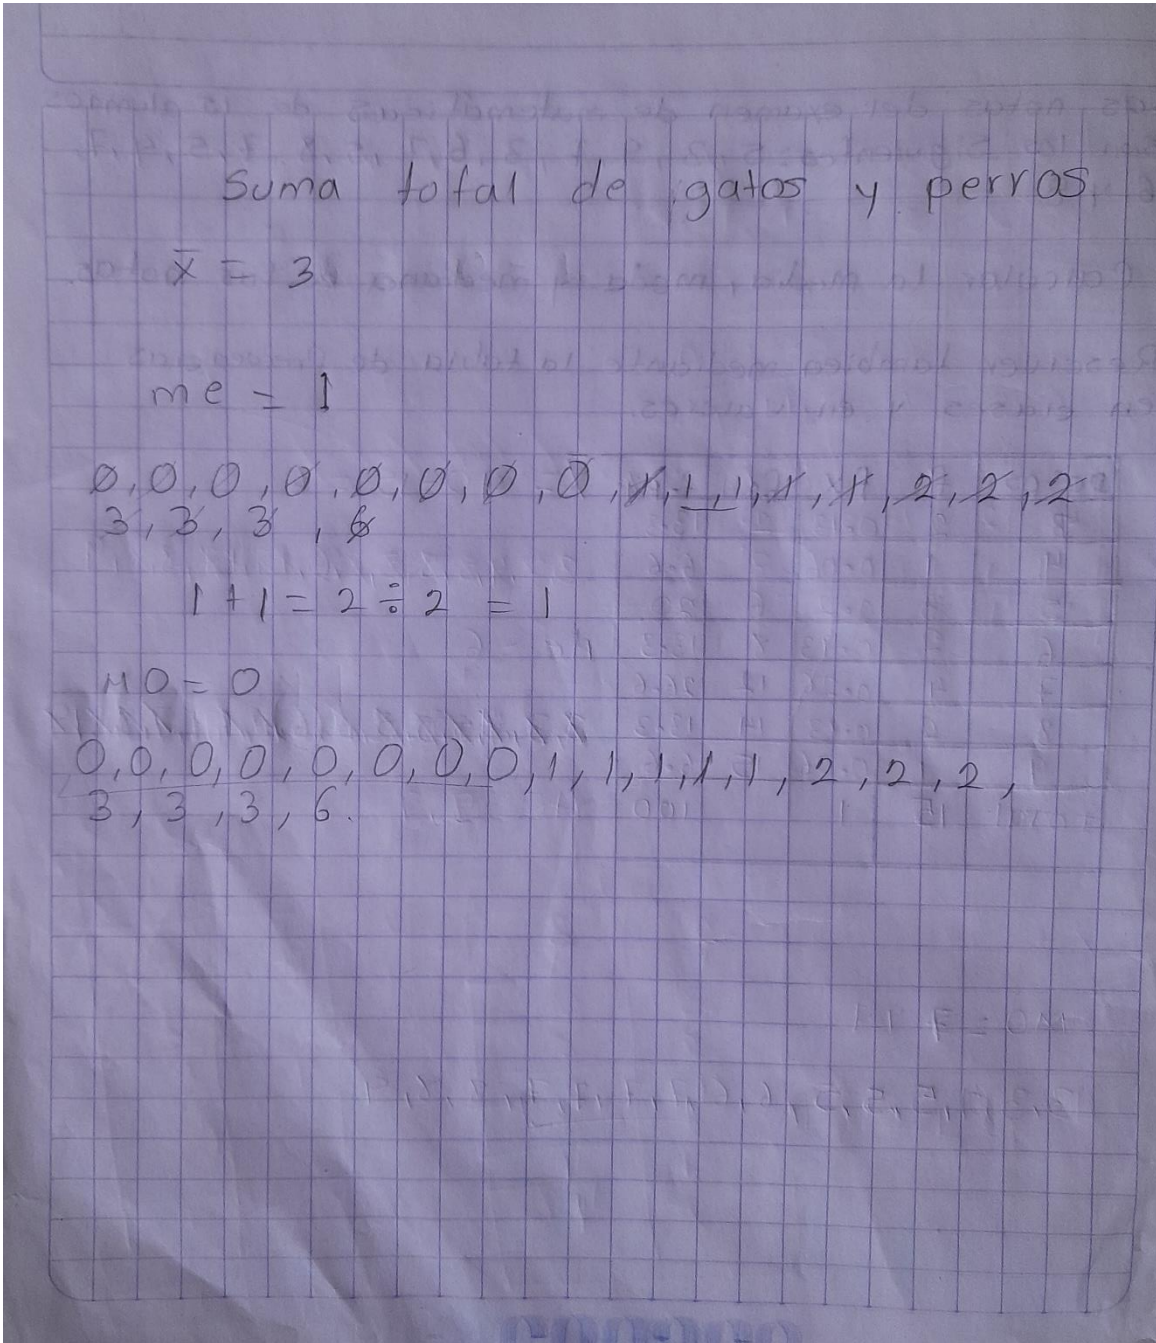 Suma total de gatos y perros
x̄ = 3
me = 1
0, 0, 0, 0, 0, 0, 0, 0, 1, 1, 1, 1, 1, 2, 2, 2
3, 3, 3, 6
1 + 1 = 2 ÷ 2 = 1
MO = 0
0, 0, 0, 0, 0, 0, 0, 0, 1, 1, 1, 1, 1, 2, 2, 2,
3, 3, 3, 6.